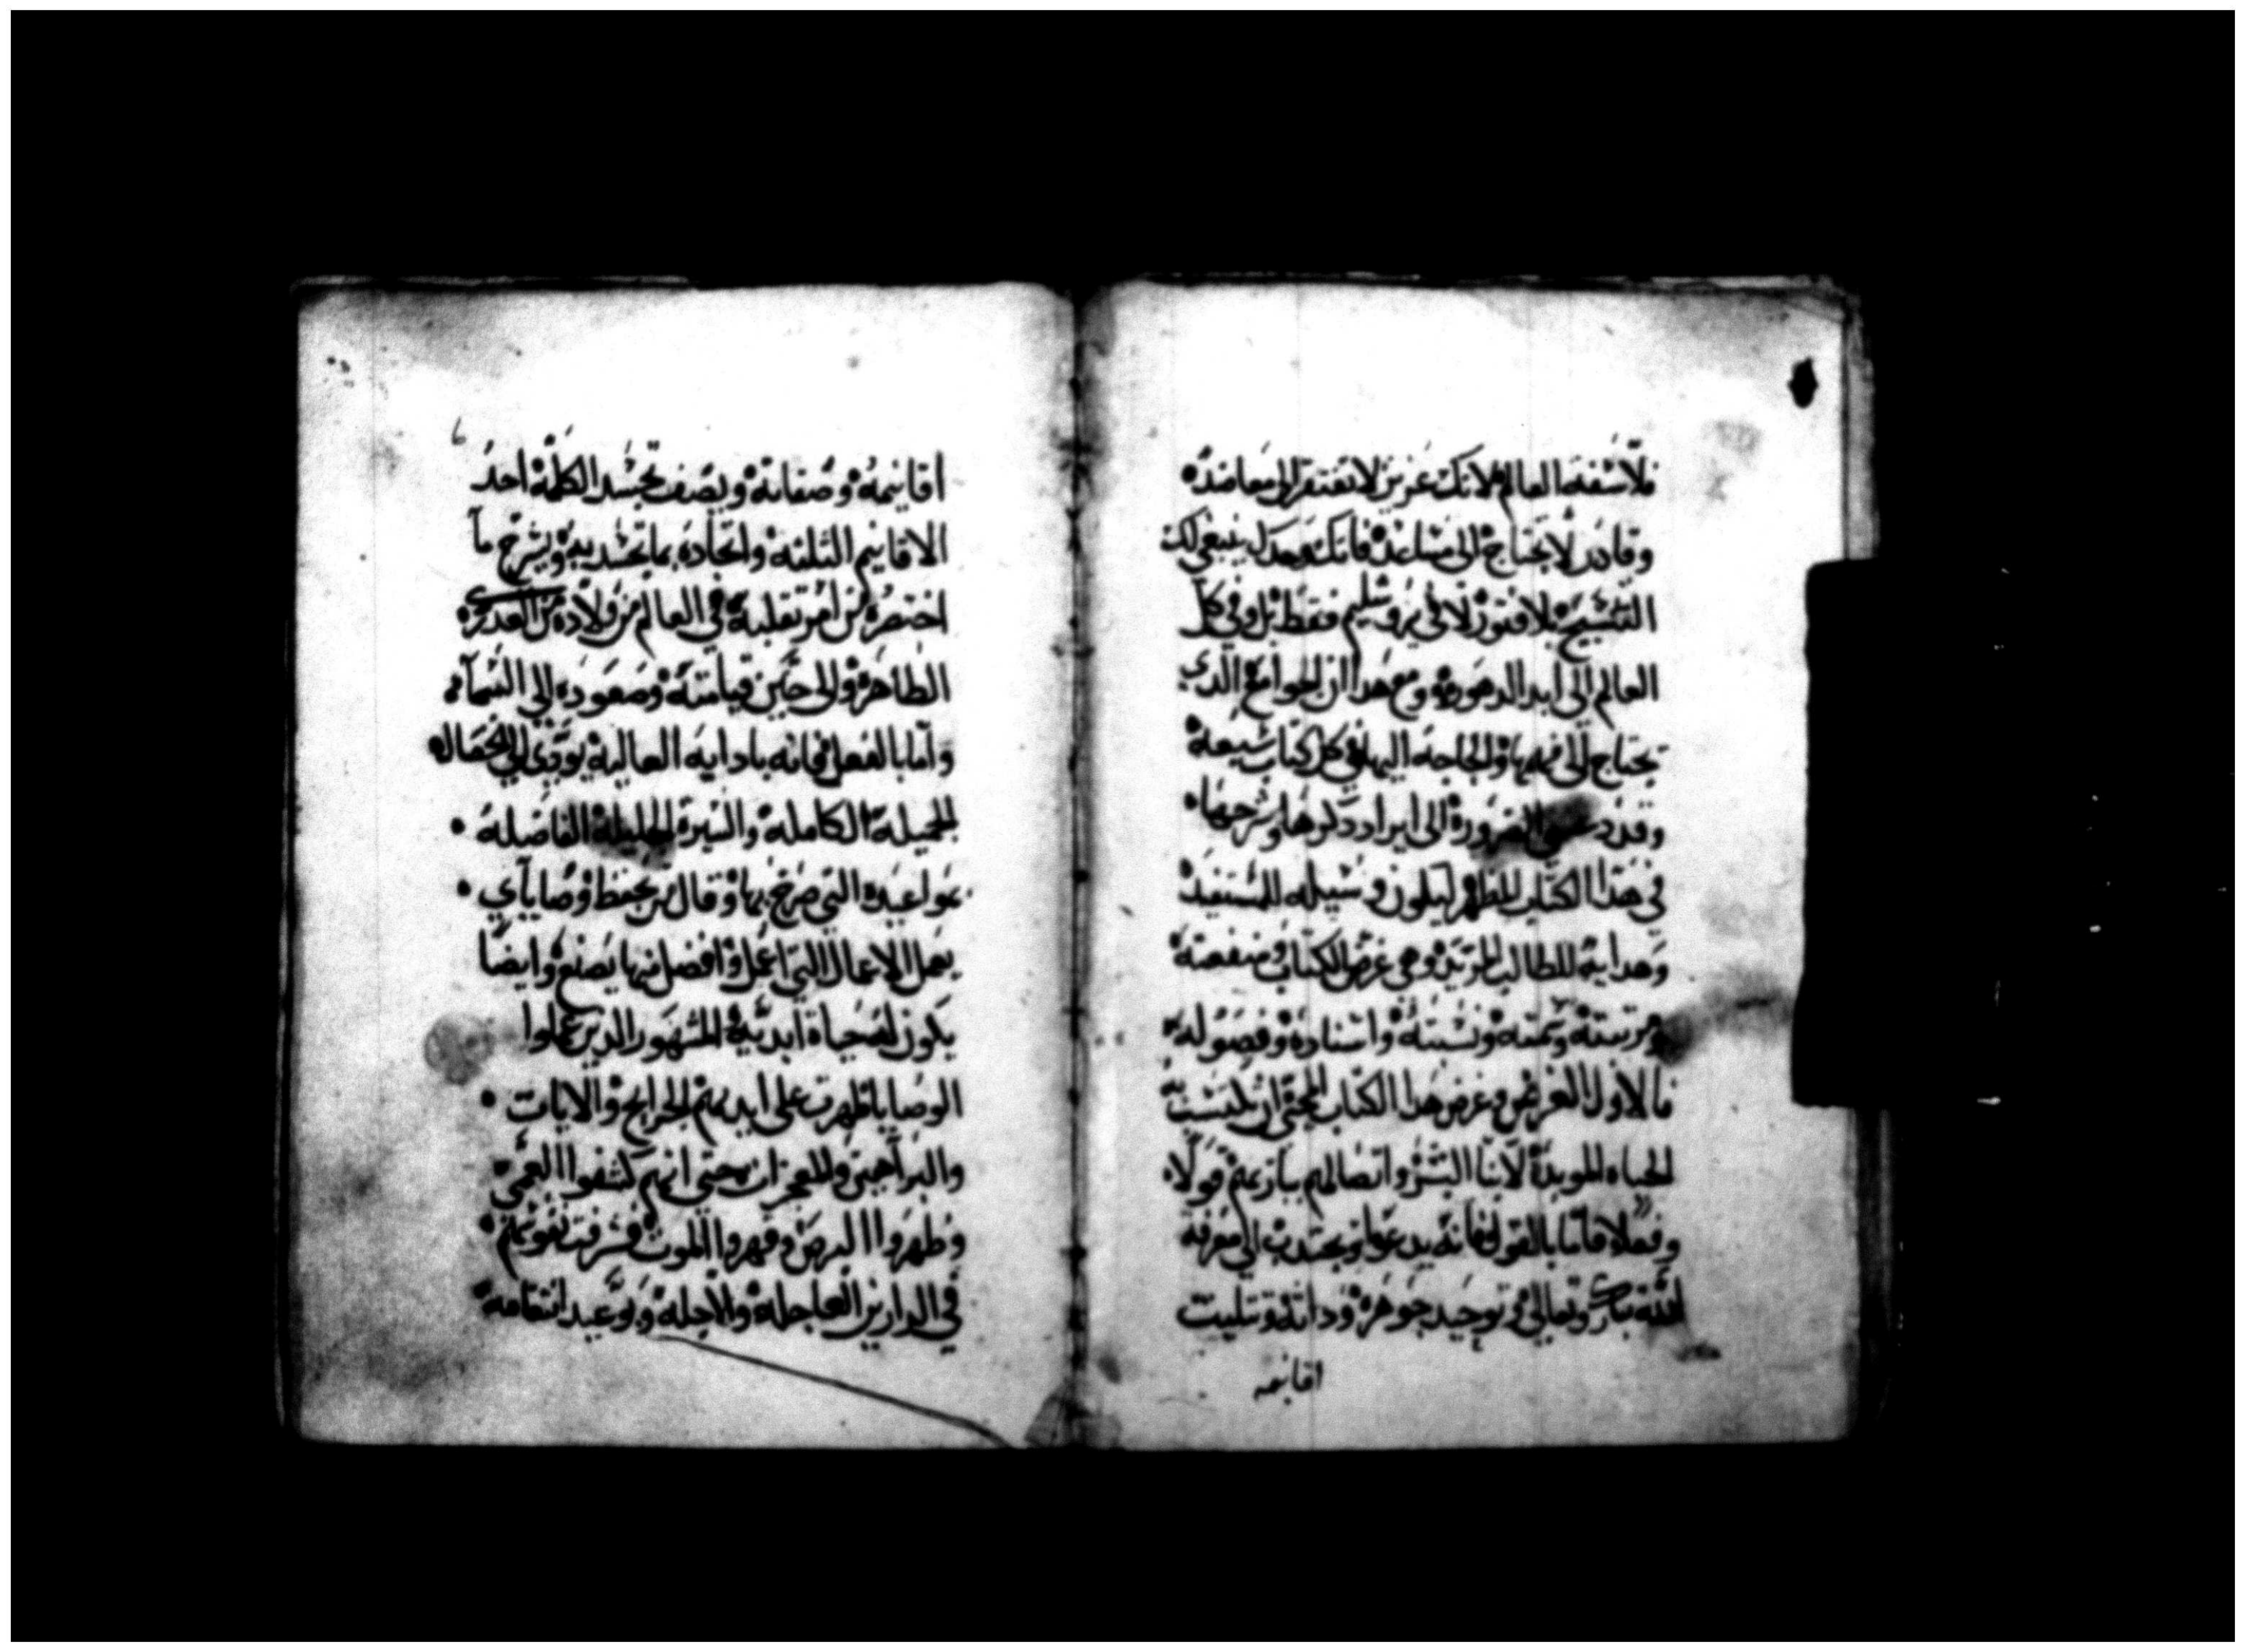 فلاسفة العالم لانك عزيز لا تفتقر الى معاضده
وقادر لا يحتاج الى مساعده فانك وحدك ينبغي لك
التسبيح بلا فتور لا في يروشليم فقط بل وفي كل
العالم الى ابد الدهور ومع هدا ان الجوامع الدي
تحتاج الى فهمها والحاجه اليها في كل كتاب شيعة
وقد الضرورة الى ايراد دكرها وشرحها
في هدا الكتاب المطهر ليكون وسيله للمستفيد
وهداية للطالب المرتيد وهي غرض الكتاب ومنفعتة
ومرتبتة وسمته ونسبتة واسنادة وفصوله
فالاول الغرض وغرض هدا الكتاب
الحياه الموبدة لابنا البشر واتصالهم بباريهم قولا
وفعلا فاما بالقول فانه يدعوا ويجتدب الى معرفة
الله تبارك وتعالى وتوحيد جوهرة وداتة وتتليت
اقانيمه
٦
اقانيمة وصفاتة ويصف تجسد الكلمة احد
الاقانيم التلتة واتحادة بما تجسد به ويشرح ما
اختصرة من امر تقلبة في العالم من ولادة من العدرى
الطاهرة والى حين قيامتة وصعودة الى السماء
واما بالفعل فانه بادايه العالية يودي الى الخصال
الجميلة الكاملة والسيرة الجليلة الفاضله
بمواعيدة التي صرح بها وقال من يحفظ وصاياي
يعمل الاعمال التي اعمل وافضل منها يصنع وايضا
يكون له حياة ابدية المشهور الدين عملوا
الوصايا ظهرت على ايديهم الجرايح والايات
والبراهين والمعجزات حتى انهم كشفوا العمى
وطهروا البرص وقهروا الموت وشرفت نفوسهم
في الدارين العاجلة والاجلة وبوعيد انتقامه